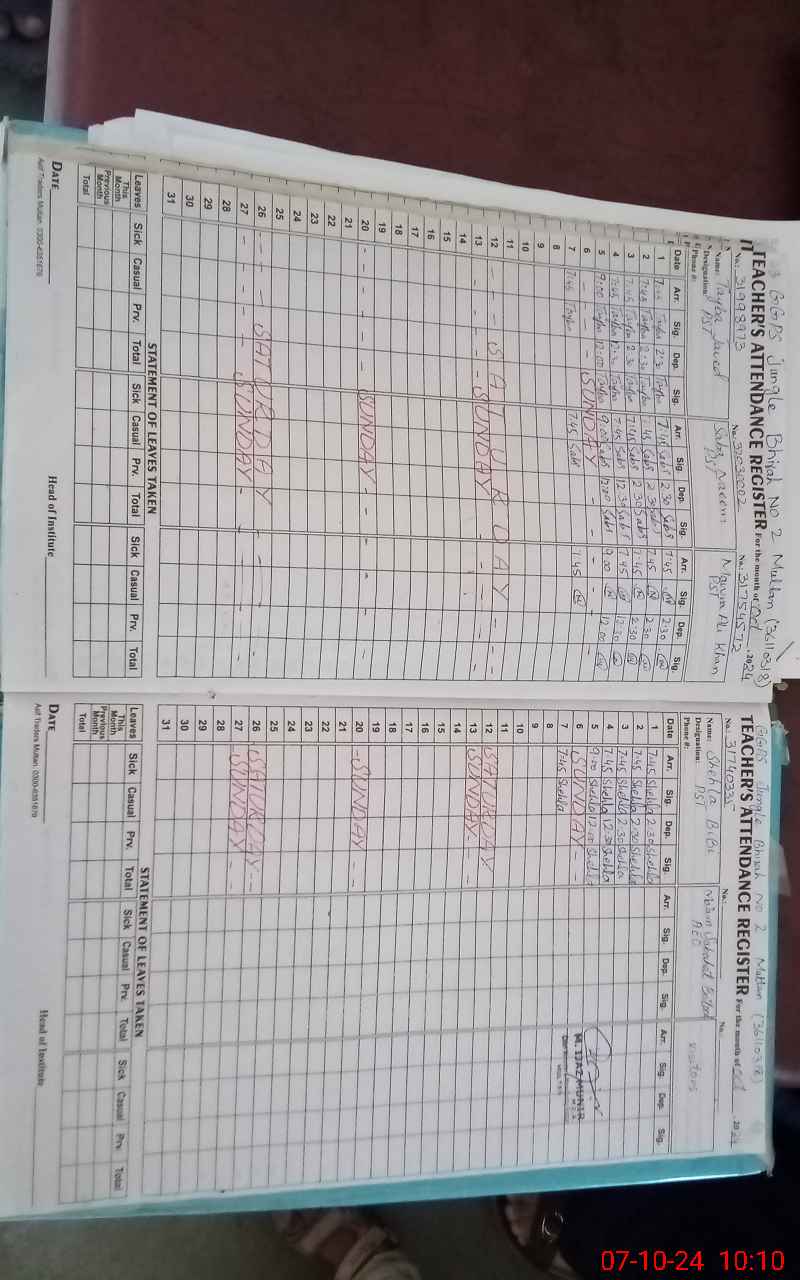 GGPS Jungle Bhirah No 2 Multan (36110318)
TEACHER'S ATTENDANCE REGISTER For the month of Oct, 2024
No.: 31998973 No. 32030002 No: 31754572
Name: Tayba Javed Maryam Ali Khan
Designation: PST PST PST
Phone #:
Date Arr. Sig. Dep. Sig. Arr. Sig. Dep. Sig. Arr. Sig. Dep. Sig.
1 7:45 Tayba 2:30 Tayba 7:45 Sabs 2:30 Sabs 7:45 2:30
2 7:45 Tayba 2:30 Tayba 7:45 Sabs 2:30 Sabs 7:45 2:30
3 7:45 Tayba 2:30 Tayba 7:45 Sabs 2:30 Sabs 7:45 2:30
4 7:45 Tayba 12:30 Tayba 7:45 Sabs 12:30 Sabs 7:45 12:30
5 9:00 Tayba 12:00 Tayba 9:00 Sabs 12:00 Sabs 9:00 12:00
6 - - - - SUNDAY - - -
7 7:45 Tayba 7:45 Sabs 7:45
8
9
10
11
12 - - - SATURDAY - - -
13 - - - SUNDAY - - -
14
15
16
17
18
19
20 - - - - SUNDAY - - - -
21
22
23
24
25
26 - - SATURDAY - -
27 - - - - SUNDAY - - -
28
29
30
31
STATEMENT OF LEAVES TAKEN
Leaves Sick Casual Prv. Total Sick Casual Prv. Total Sick Casual Prv. Total
This Month
Previous Month
Total
DATE Head of Institute
Asif Traders Multan. 0300-6351679
GGPS Jungle Bhirah No 2 Multan (36110318)
TEACHER'S ATTENDANCE REGISTER For the month of Oct, 2024
No.: 31740335 No.: No.:
Name: Shehla BiBi visitors
Designation: PST AEO
Phone #:
Date Arr. Sig. Dep. Sig. Arr. Sig. Dep. Sig. Arr. Sig. Dep. Sig.
1 7:45 Shehla 2:30 Shehla
2 7:45 Shehla 2:30 Shehla
3 7:45 Shehla 2:30 Shehla
4 7:45 Shehla 12:30 Shehla
5 9:00 Shehla 12:00 Shehla
6 SUNDAY - -
M. IJAZ MUNIR
7 7:45 Shehla
8
9
10
11
12 SATURDAY
13 SUNDAY - - -
14
15
16
17
18
19
20 - SUNDAY - - -
21
22
23
24
25
26 SATURDAY - -
27 - SUNDAY - -
28
29
30
31
STATEMENT OF LEAVES TAKEN
Leaves Sick Casual Prv. Total Sick Casual Prv. Total Sick Casual Prv. Total
This Month
Previous Month
Total
DATE Head of Institute
Asif Traders Multan. 0300-6351679
07-10-24 10:10